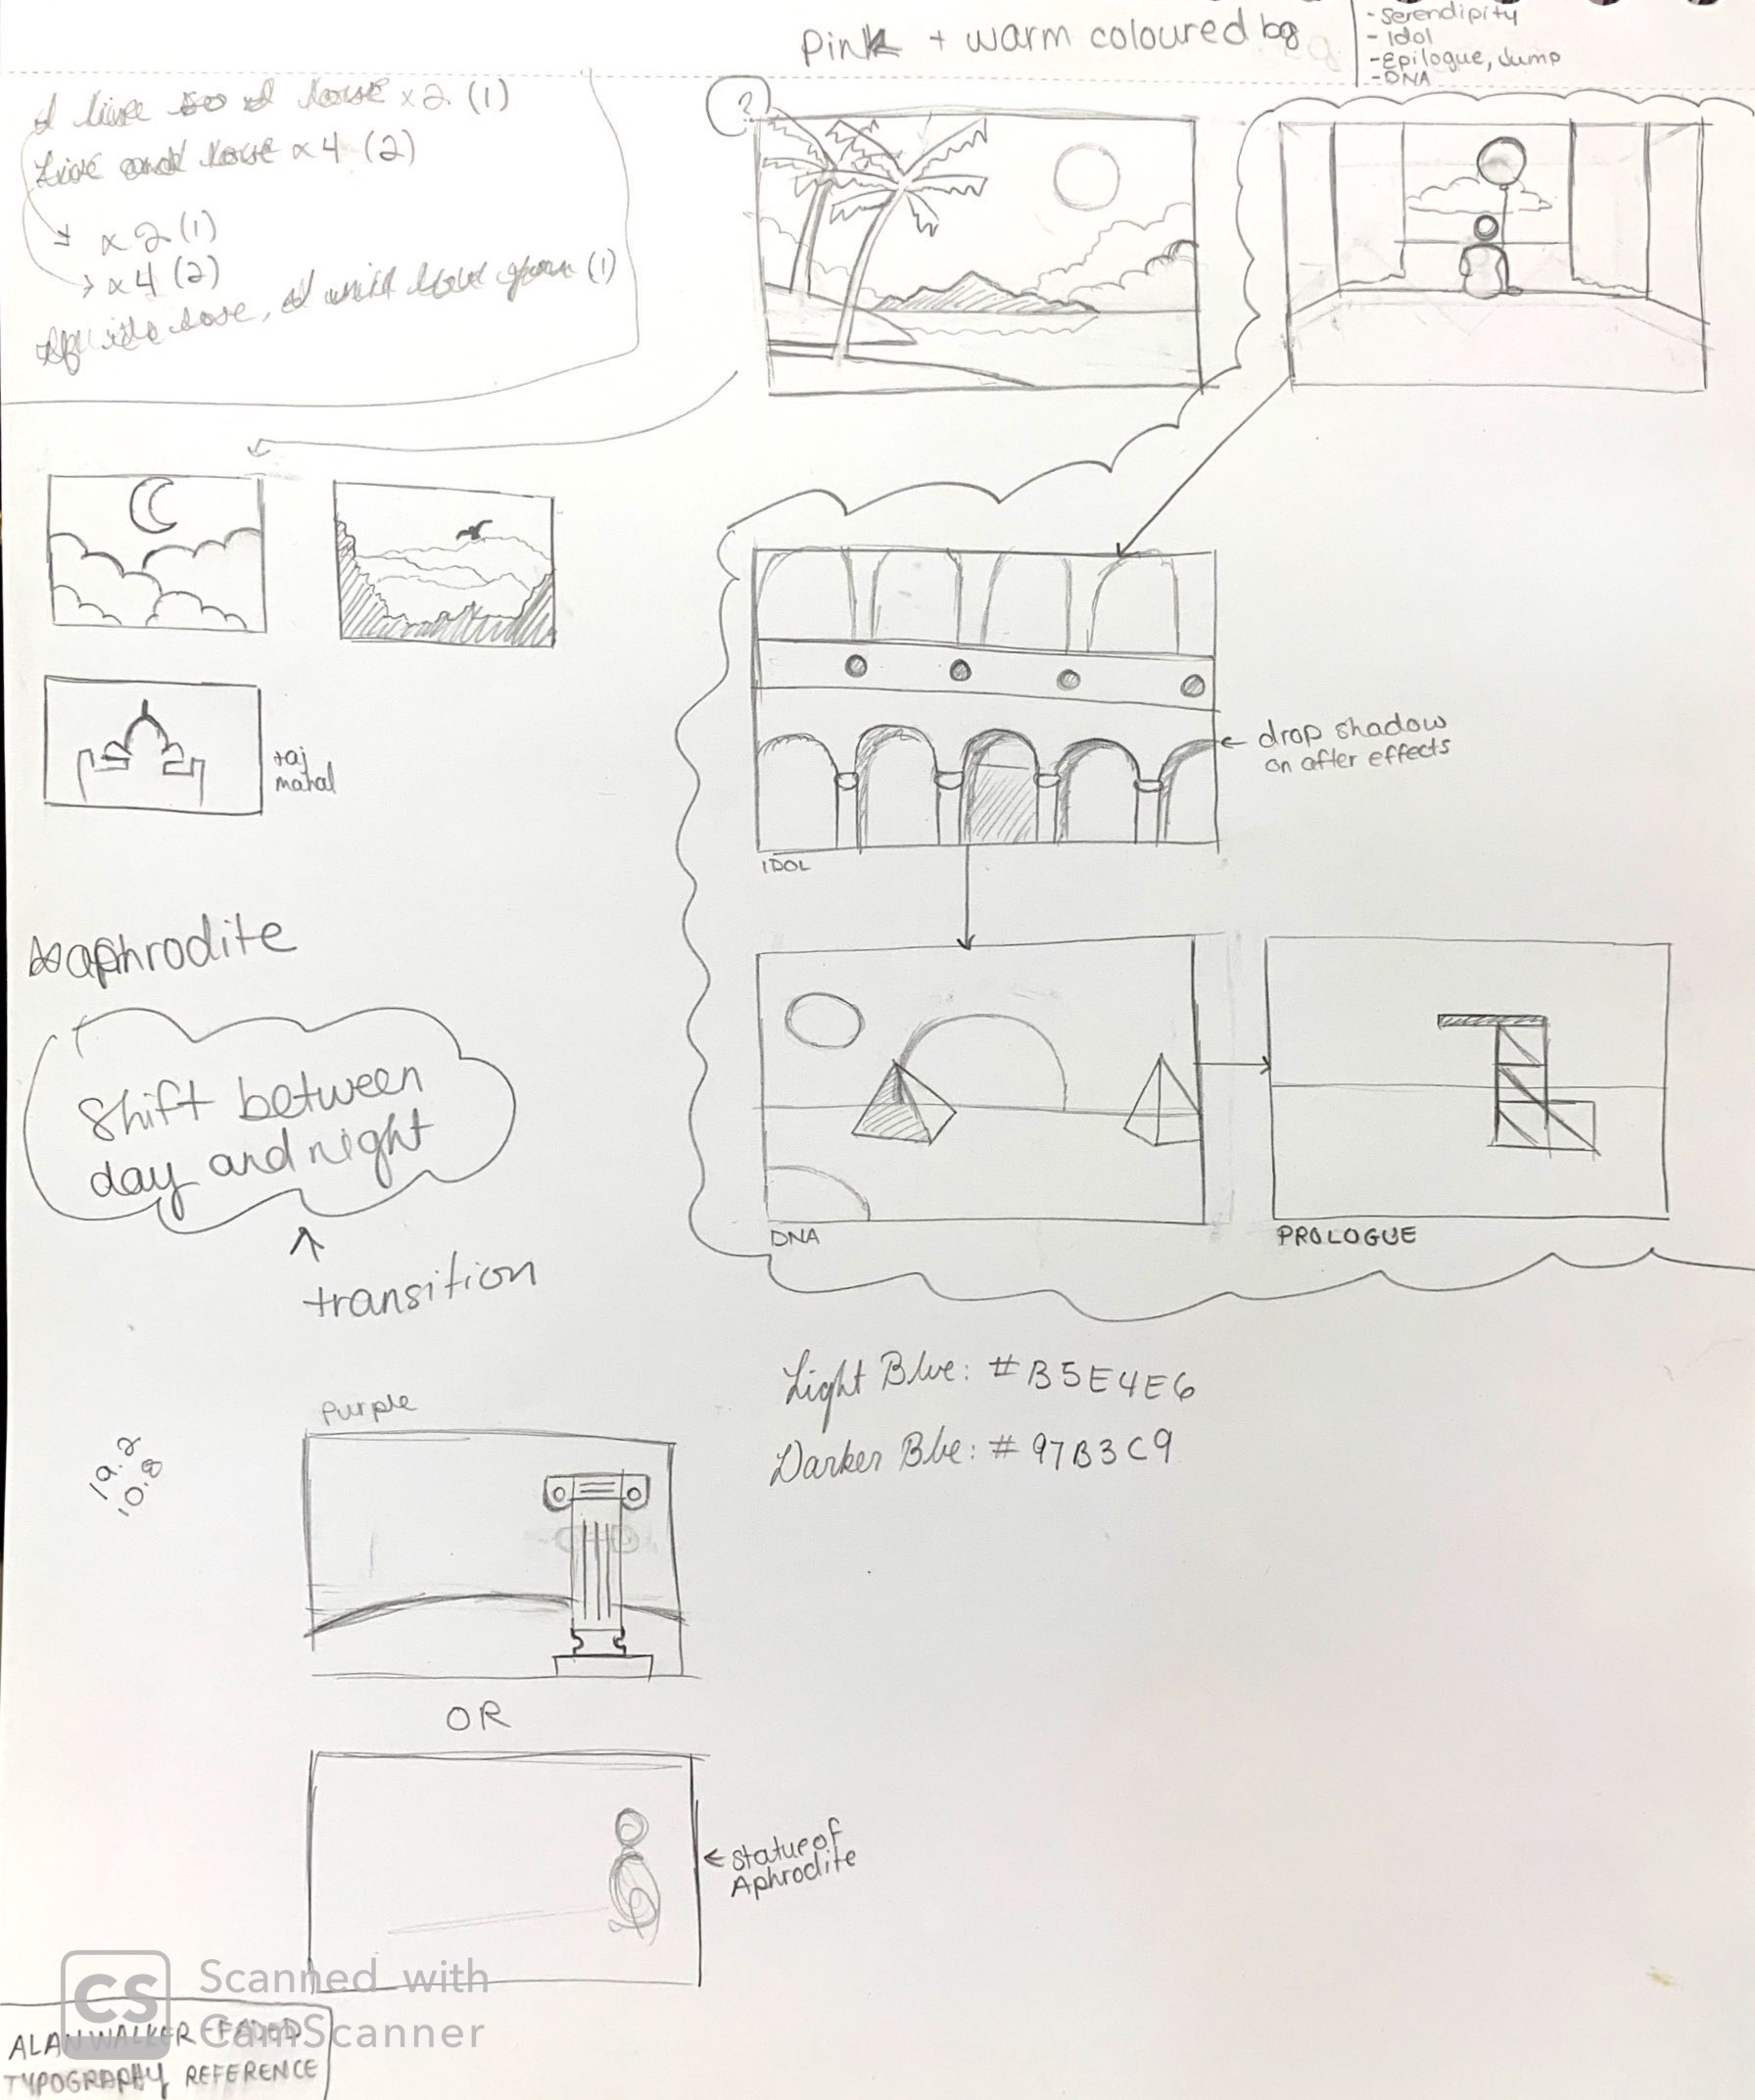 Pink + warm coloured bg
- Serendipity
- Idol
- Epilogue, Jump
- DNA
I live so I love x2 (1)
Live and love x4 (2)
x2 (1)
x4 (2)
love, I will love you (1)
?
taj
mahal
drop shadow
on after effects
IDOL
aphrodite
Shift between
day and night
transition
DNA
PROLOGUE
Light Blue: #B5E4E6
Darker Blue: #97B3C9
Purple
19.2
10.8
OR
statue of
Aphrodite
CS
Scanned with
CamScanner
ALAN WALKER - FADED
TYPOGRAPHY REFERENCE